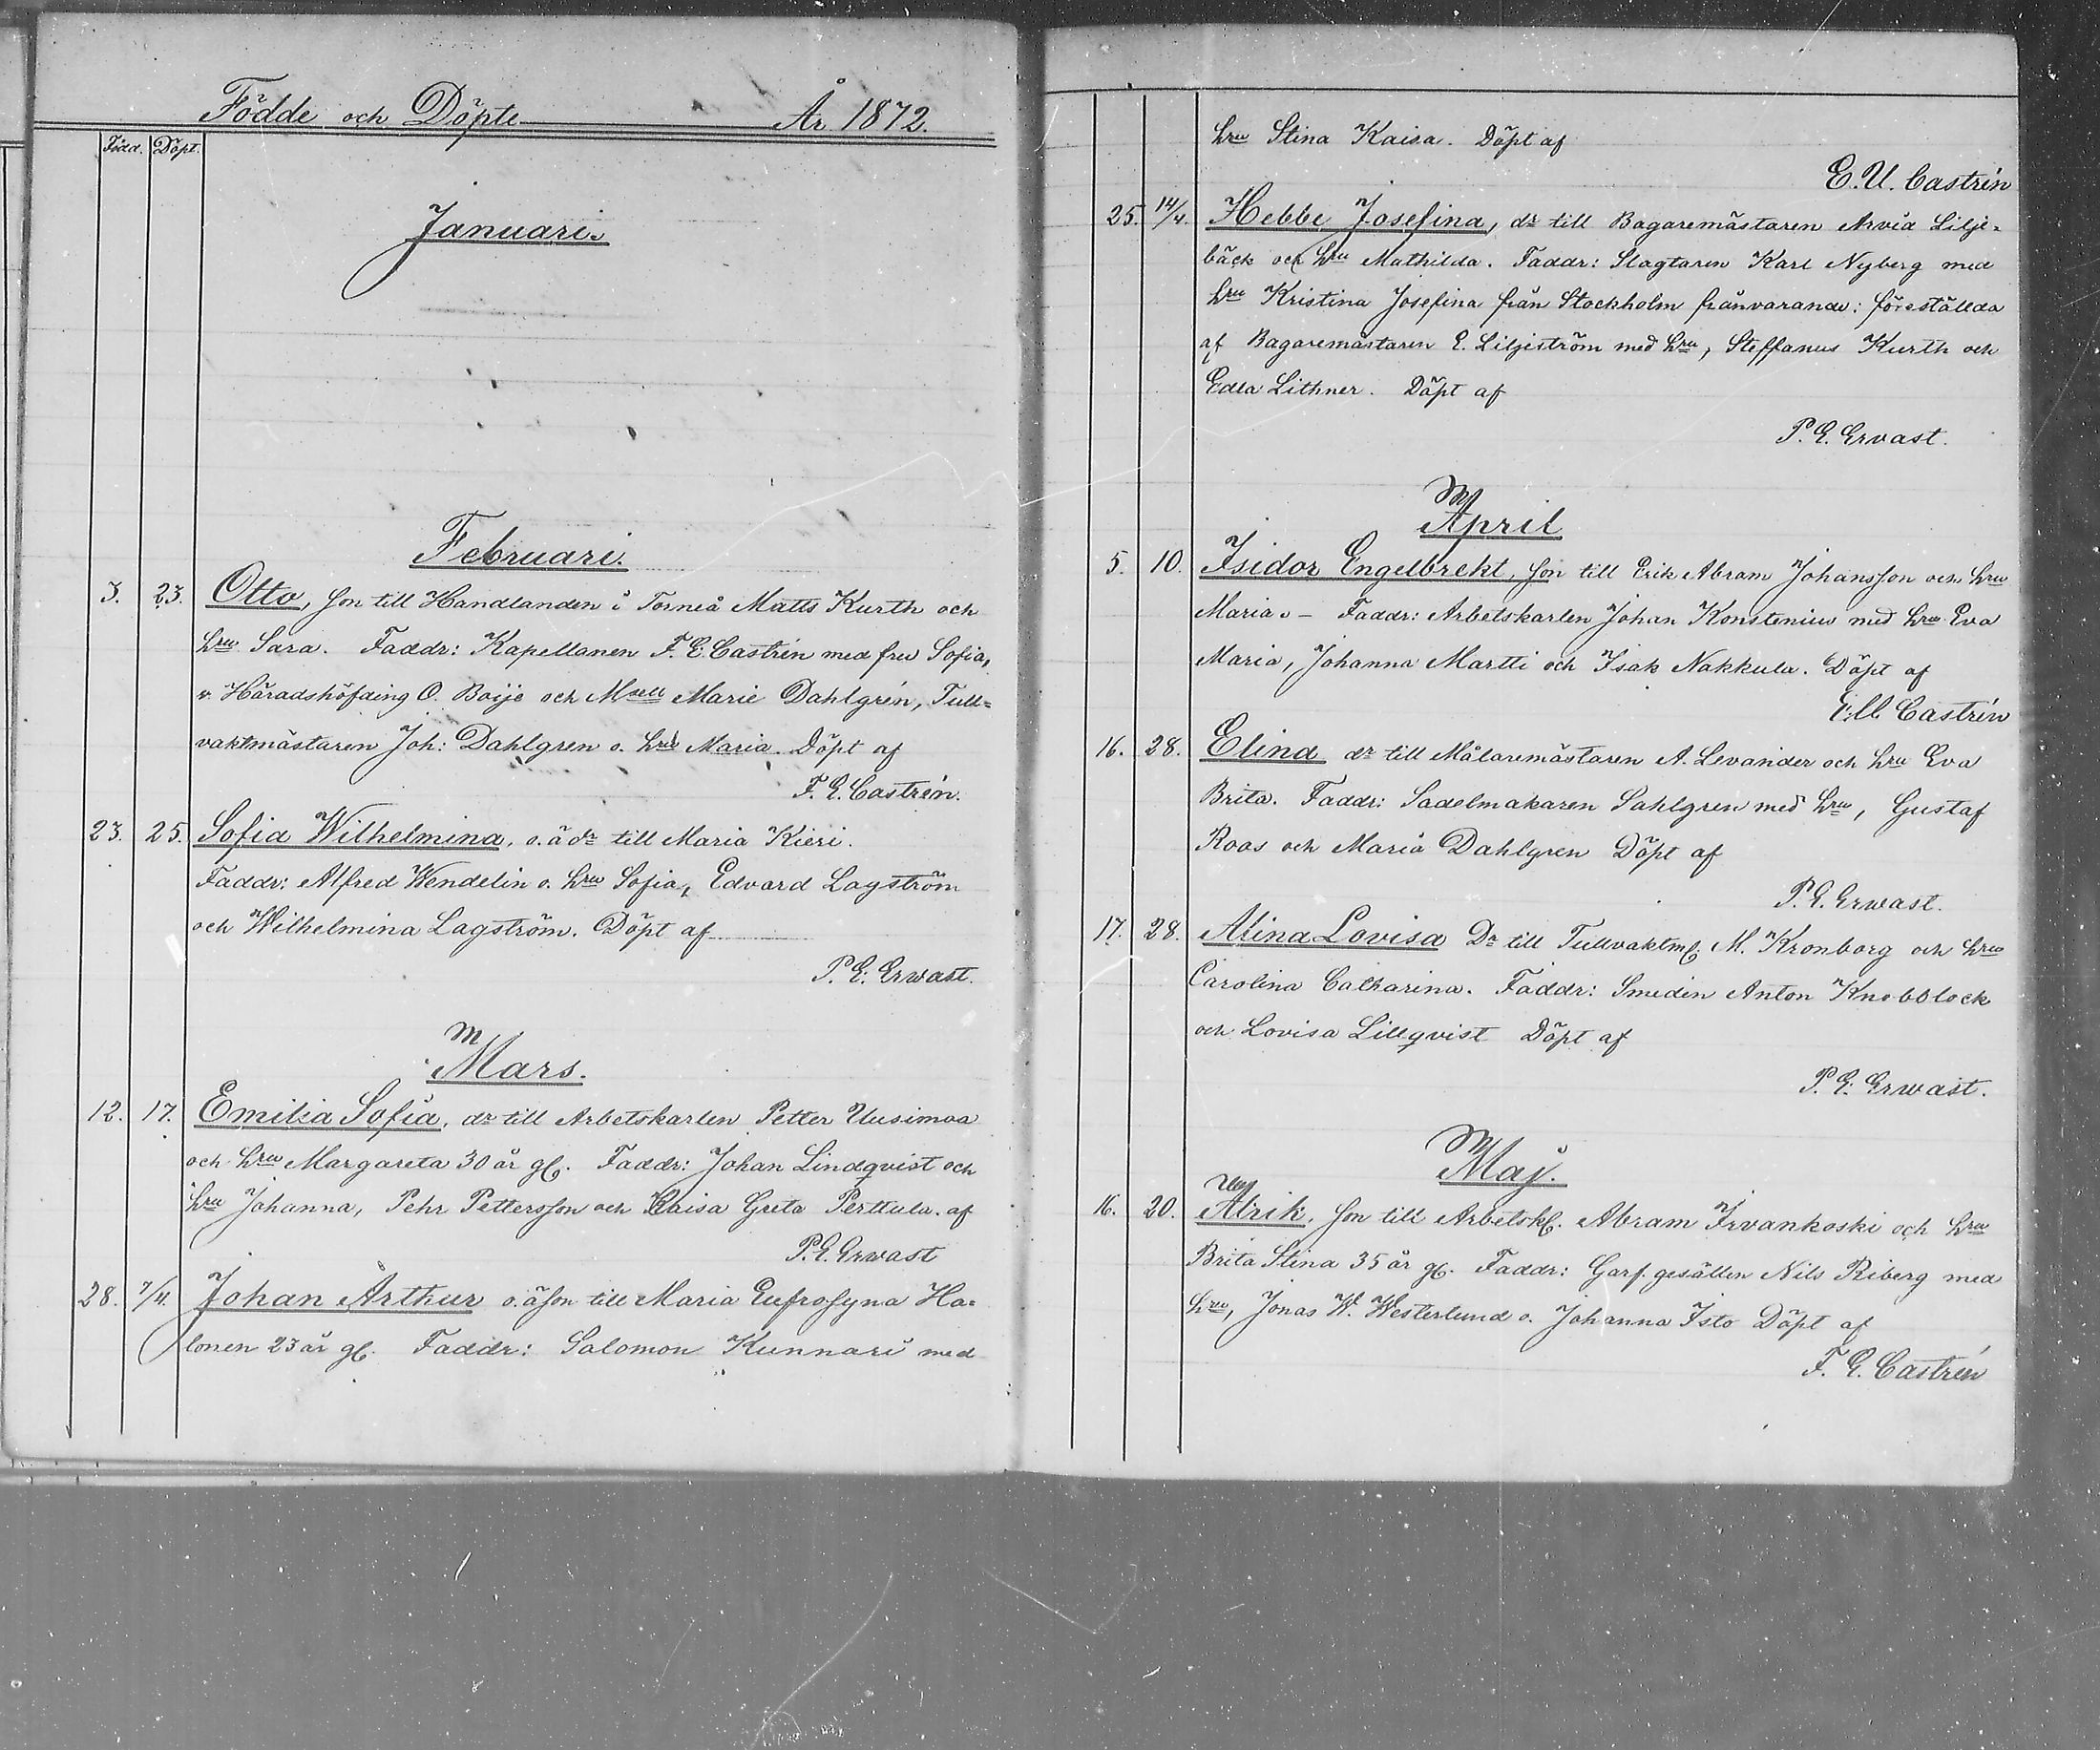 Födde och Döpte År 1872.
Född. Döpt.
Januari.
Februari.
3. 23. Otto, son till Handlanden i Torneå Matts Kurth och
hru Sara. Faddr: Kapellanen F. E. Castrén med fru Sofia,
v. Häradshöfding O. Boije och Msell Marie Dahlgrén, Tull-
vaktmästaren Joh: Dahlgren o. hru Maria. Döpt af
F. E. Castrén.
23. 25. Sofia Wilhelmina, o.ä dr till Maria Kieri.
Faddr: Alfred Wendelin o. hru Sofia, Edvard Lagström
och Wilhelmina Lagström. Döpt af
P. E. Erwast.
Mars.
12. 17. Emilia Sofia, dr till Arbetskarlen Petter Uusimaa
och hru Margareta 30 år gl. Faddr: Johan Lindqvist och
hru Johanna, Pehr Pettersson och Kaisa Greta Perttula. af
P. E. Erwast
28. 7/4. Johan Arthur o.ä son till Maria Eufrosyna Ha-
lonen 23 år gl. Faddr: Salomon Kunnari med
hru Stina Kaisa. Döpt af
E. U. Castrén
25. 14/4. Hebbe Josefina, dr till Bagaremästaren Arvid Lilje-
bäck och hru Mathilda. Faddr: Slagtaren Karl Nyberg med
hru Kristina Josefina från Stockholm frånvarande: föreställda
af Bagaremästaren E. Liljeström med hru, Steffanus Kurth och
Edla Lithner. Döpt af
P. E. Ervast.
April
5. 10. Isidor Engelbrekt, son till Erik Abram Johansson och hru
Maria. – Faddr: Arbetskarlen Johan Konstenius med hru Eva
Maria, Johanna Martti och Isak Nakkula. Döpt af
Castrén
16. 28. Elina dr till Målaremästaren A. Levander och hru Eva
Brita. Faddr: Sadelmakaren Sahlgren med hru, Gustaf
Roos och Maria Dahlgren Döpt af
P. E. Erwast.
17. 28. Alina Lovisa Dr till Tullvaktm. M. Kronborg och hru
Carolina Catharina. Faddr: Smeden Anton Knobblock
och Lovisa Lillqvist Döpt af
P. E. Erwast.
Maj.
16. 20. Alrik, son till Arbetsk. Abram Irvankoski och hru
Brita Stina 35 år gl. Faddr: Garf. gesällen Nils Riberg med
hru, Jonas W. Westerlund o. Johanna Isto Döpt af
F. E. Castrén